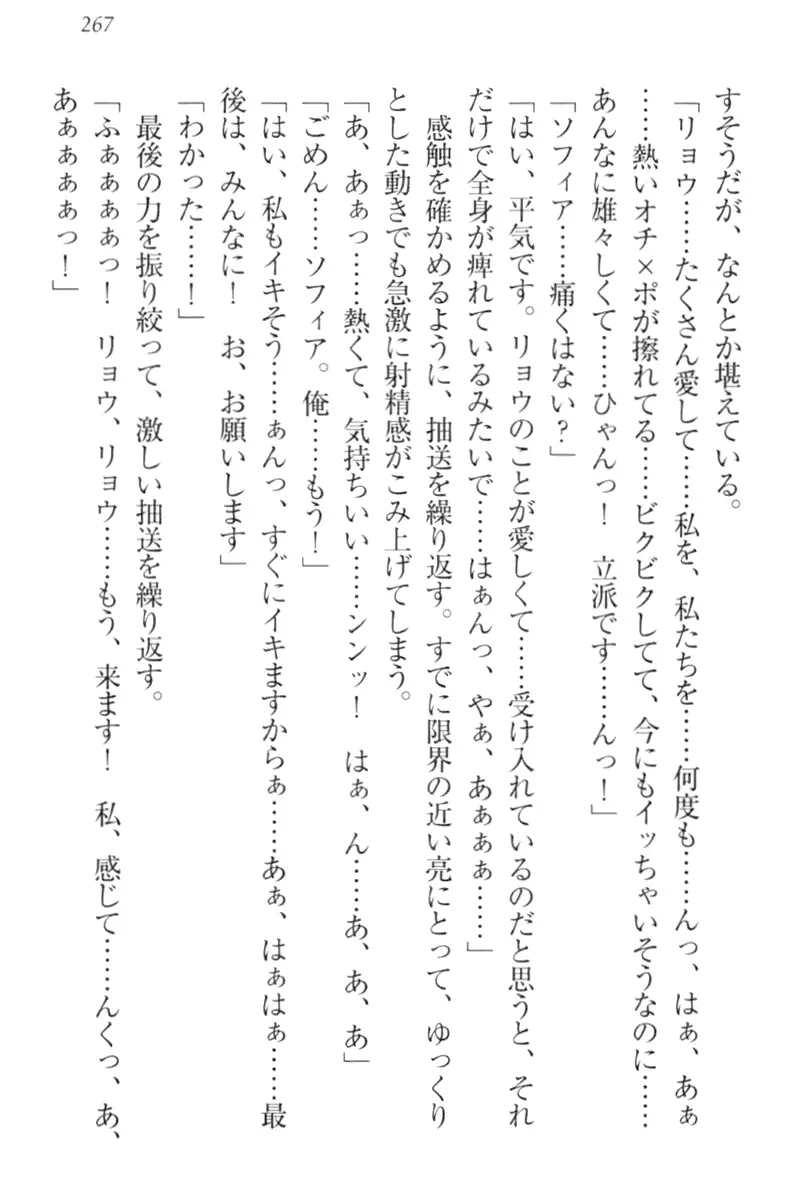 267
すそうだが、なんとか堪えている。
「リョウ……たくさん愛して……私を、私たちを……何度も……んっ、はぁ、あぁ
……熱いオチ×ポが擦れてる……ビクビクしてて、今にもイッちゃいそうなのに……
あんなに雄々しくて……ひゃんっ！　立派です……んっ！」
「ソフィア……痛くはない？」
「はい、平気です。リョウのことが愛しくて……受け入れているのだと思うと、それ
だけで全身が痺れているみたいで……はぁんっ、やぁ、あぁぁぁ……」
　感触を確かめるように、抽送を繰り返す。すでに限界の近い亮にとって、ゆっくり
とした動きでも急激に射精感がこみ上げてしまう。
「あ、あぁっ……熱くて、気持ちいい……ンンッ！　はぁ、ん……あ、あ、あ」
「ごめん……ソフィア。俺……もう！」
「はい、私もイキそう……ぁんっ、すぐにイキますからぁ……あぁ、はぁはぁ……最
後は、みんなに！　お、お願いします」
「わかった……！」
　最後の力を振り絞って、激しい抽送を繰り返す。
「ふぁぁぁぁっ！　リョウ、リョウ……もう、来ます！　私、感じて……んくっ、あ、
あぁぁぁぁっ！」